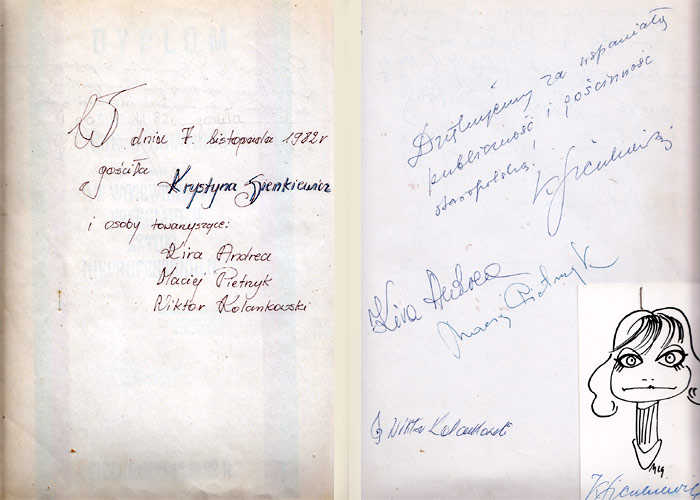 W dniu 7. listopada 1982r
gościła Krystyna Sienkiewicz
i osoby towarzyszące:
Kira Andrea
Maciej Pietrzyk
Wiktor Kolankowski
Dziękujemy za wspaniałą
publiczność i gościnność
staropolską!
K Sienkiewicz
Kira Andrea
Maciej Pietrzyk
Wiktor Kolankowski
K Sienkiewicz
DYPLOM